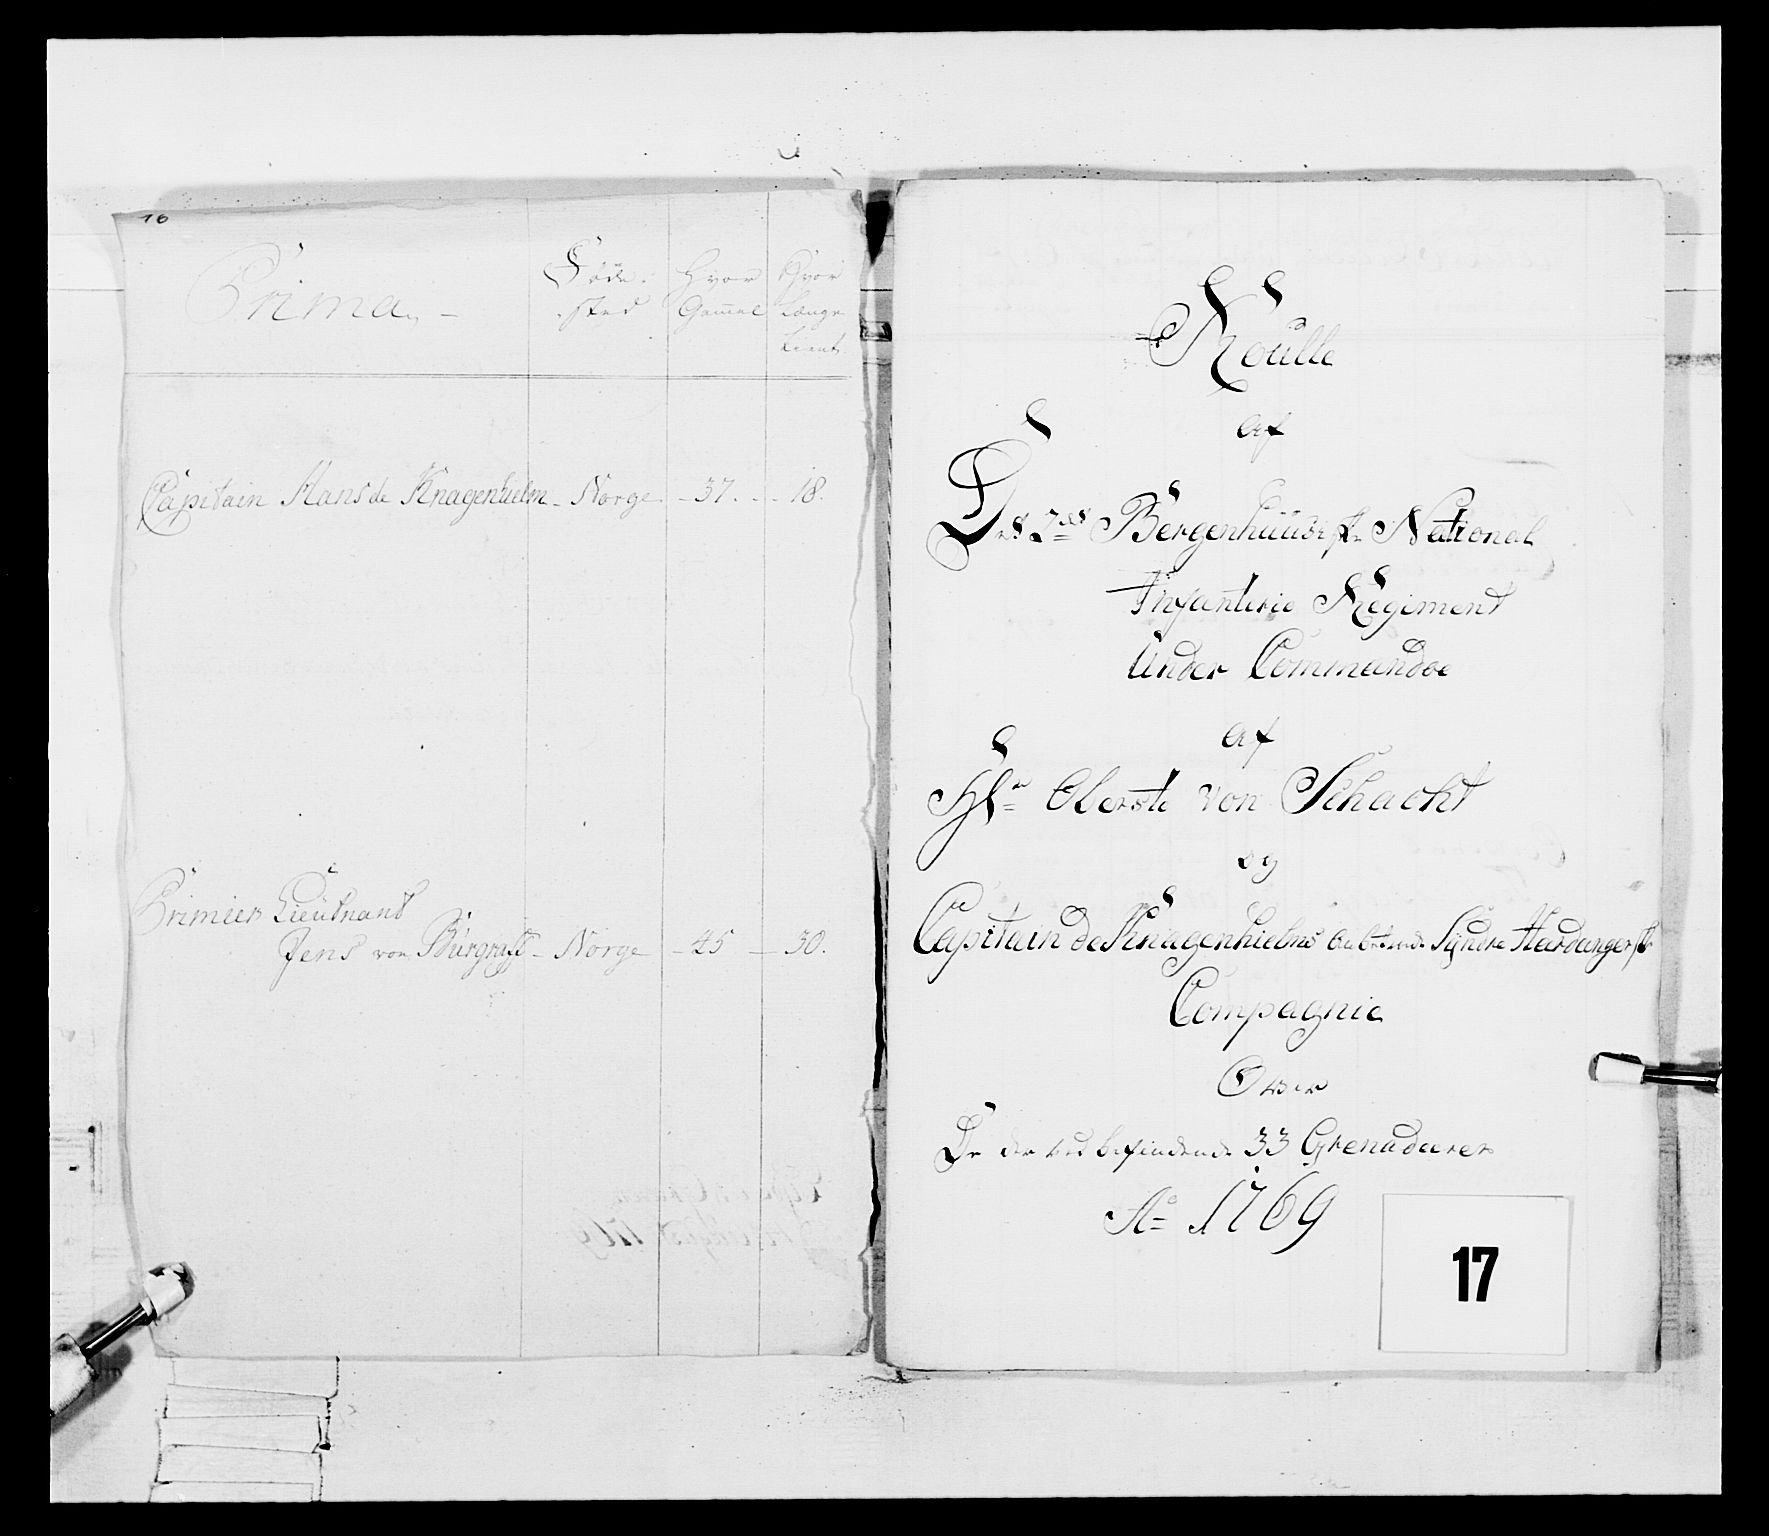 16
Prima
Føde-
sted
Hvor
Gammel
Hvor
Længe
Tient
Capitain Hans de Knagenhielm - Norge - 37. - 18.
Primier Lieutnant
Jens von Bürgraff - Norge - 45 - 30.
Roulle
af
Des 2det Bergenhuusiske National
Infanterie Regiment
Under Commandoe
af
Hr Oberste von Schacht
og
Capitain de Knagenhielms Søndre Hardangerske
Compagnie
Over
De der ved befindende 33 Grenaderer
Ao 1769
17